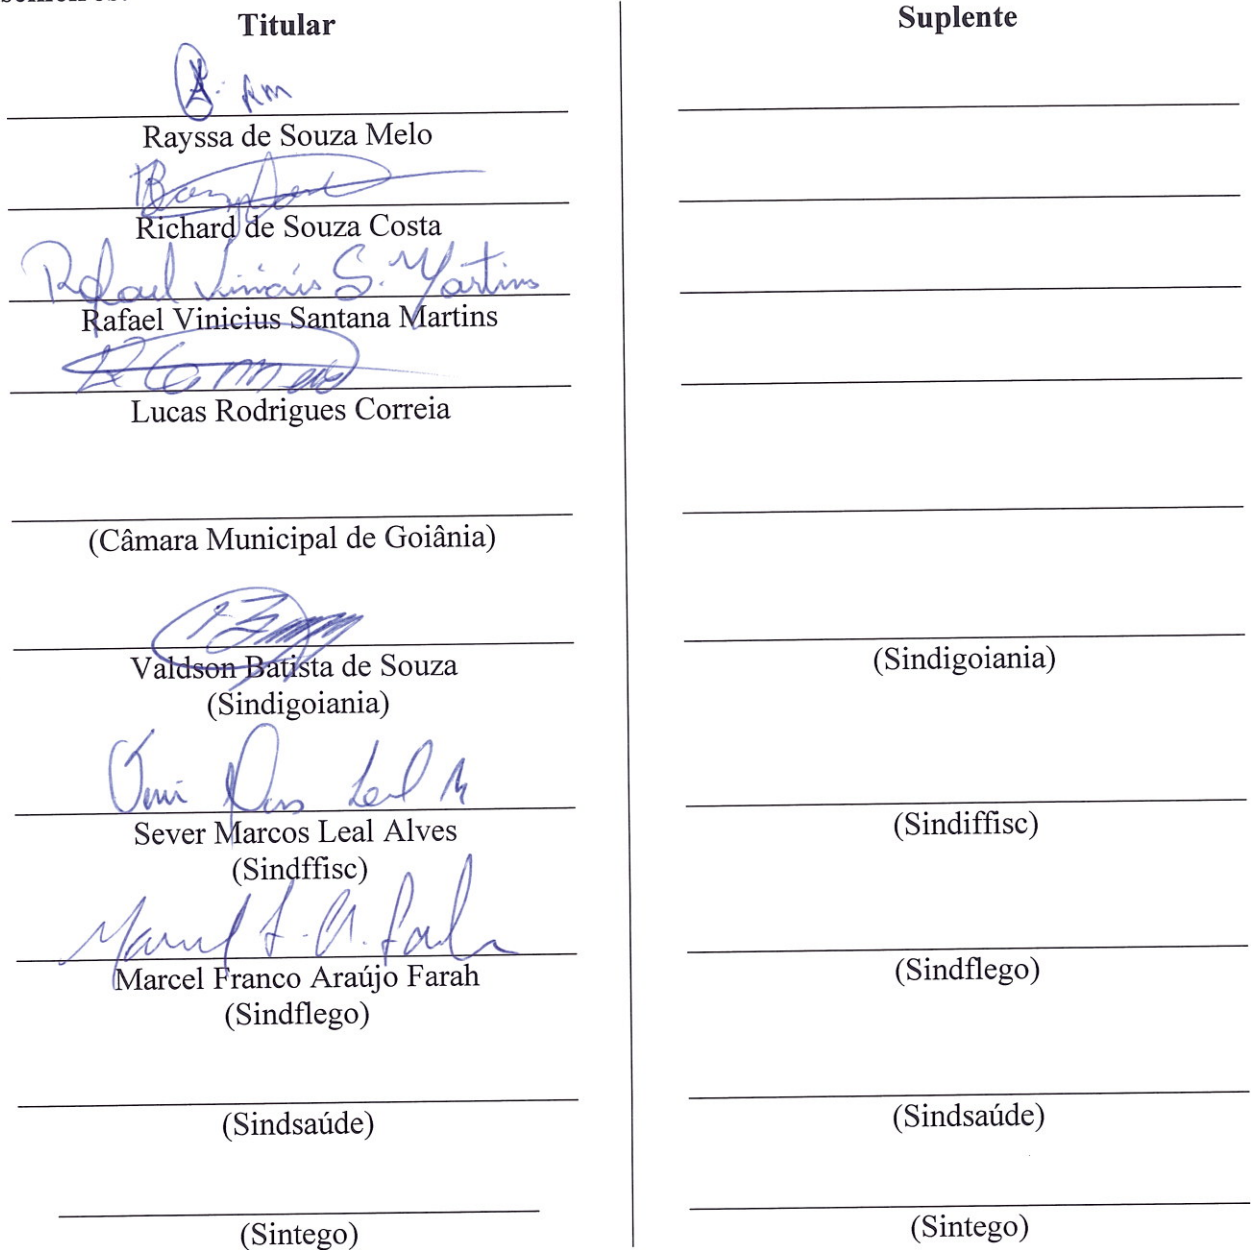 Titular
Rayssa de Souza Melo
Richard de Souza Costa
Rafael Vinicius S. Martins
Rafael Vinicius Santana Martins
Lucas Rodrigues Correia
(Câmara Municipal de Goiânia)
Valdson Batista de Souza
(Sindigoiania)
Sever Marcos Leal Alves
(Sindffisc)
Marcel F. A. Farah
Marcel Franco Araújo Farah
(Sindflego)
(Sindsaúde)
(Sintego)
Suplente
(Sindigoiania)
(Sindiffisc)
(Sindflego)
(Sindsaúde)
(Sintego)